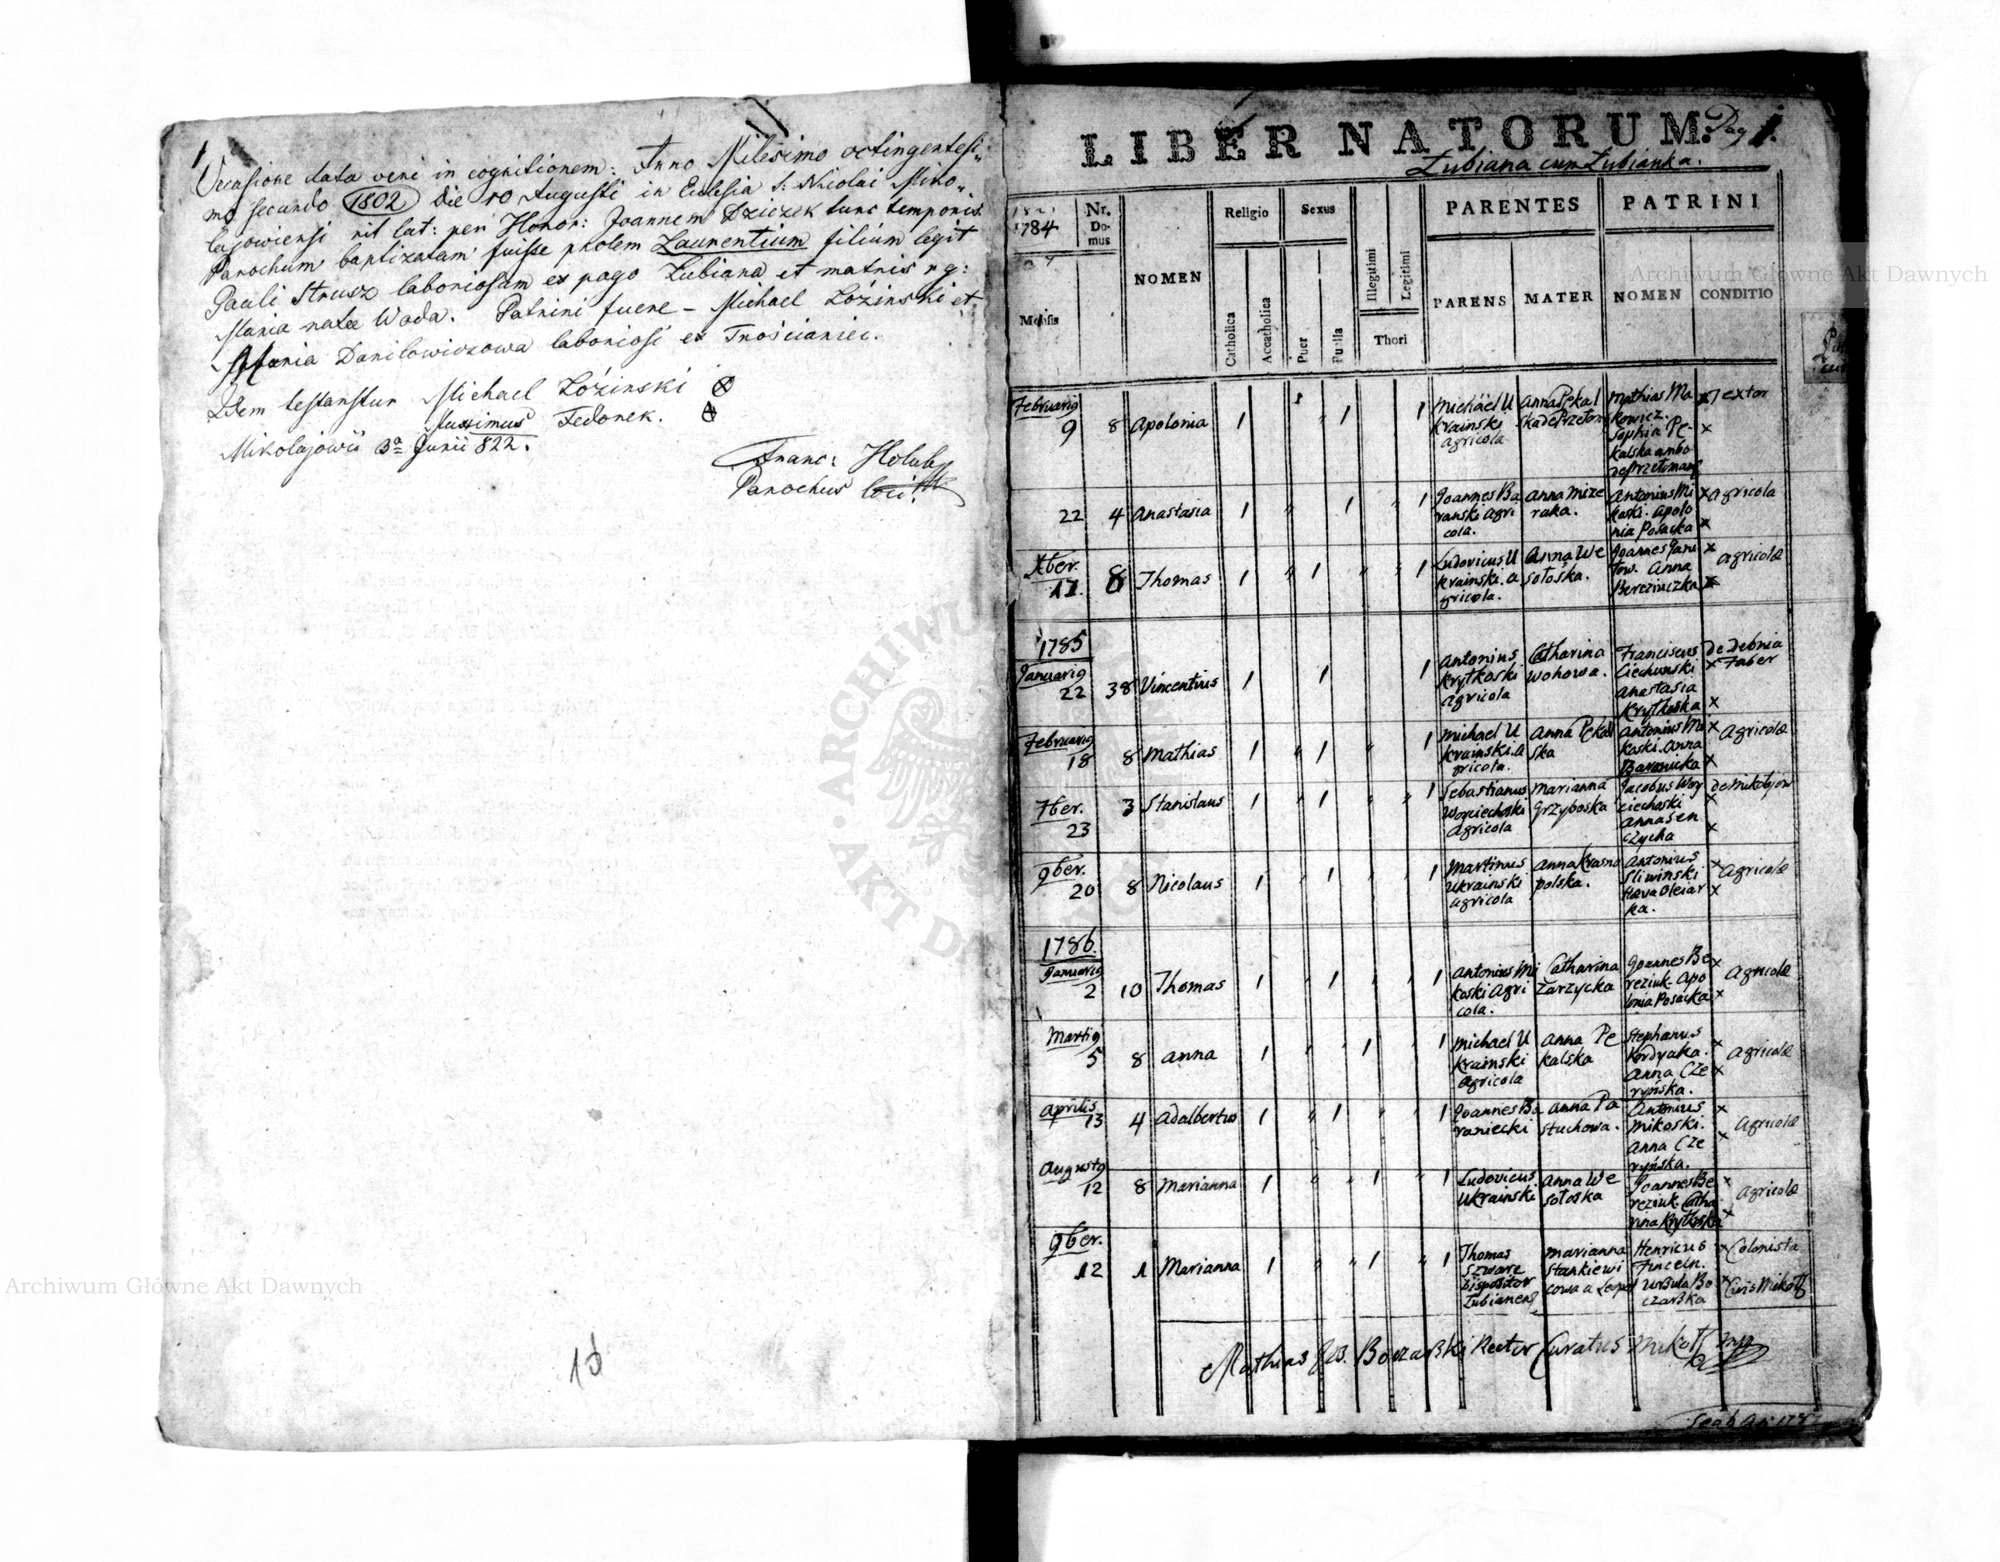 1
Occasione data veni in cognitionem: Anno Milesimo octingentesi„
mo secundo 1802 die 10 Augusti in Ecclesia S: Nicolai Miko„
lajowiensi rit lat: per Honor: Joannem Dziczek tunc temporis
Parochum baptizatam fuisse prolem Laurentium filium legit
Pauli Strusz laboriosam ex pago Łubiana et matris
Maria natae Woda. Patrini fuere – Michael Łoźinski et
Maria Daniłowiczowa laboriosi ex Trościaniec.
Idem testantur Michael Łoźinski
Maximus Fedonek.
Mikolajowii 3a Junii 822.
Franc: Holuby
Parochus loci
Archiwum Główne Akt Dawnych
LIBER NATORUM. Pag 1.
Łubiana cum Łubianka.
1784
Mensis
Nr. Domus
NOMEN
Religio
Catholica
Acatholica
Sexus
Puer
Puella
Illegitimi
Legitimi
Thori
PARENTES
PARENS
MATER
PATRINI
NOMEN
CONDITIO
Archiwum Główne Akt Dawnych
Februarig 9 8 Apolonia 1 „ 1 1 Michael U
krainski
agricola
Anna Pękal
ska de Przetom
Mathias Ma
kowicz.
Sophia Pe-
kalska ambo
x Textor
x
22 4 Anastasia 1 „ 1 „ 1 Joannes Ba
ranski Agri
cola.
Anna Mize
raka.
Antonius Mi
koski. Apolo
nia Posacka
x Agricola
x
Xber. 17. 8 Thomas 1 „ 1 „ „ 1 Ludovicus U
krainski. A
gricola.
Anna We
sołoska.
Joannes Jani
tow. Anna
Bereziuczka
x Agricolæ
x
1785
Januarig 22 38 Vincentius 1 1 1 Antonius
Krytkoski
agricola
Catharina
Wohowa.
Franciscus
Ciechunski
Anastasia
Krytkoska
de Debnia
x Faber
x
Februarig 18 8 Mathias 1 „ 1 „ 1 Michael U
krainski. A
gricola.
Anna Pękal
ska
Antonius Mi
koski. Anna
Baranicka
x Agricolæ
x
7ber. 23 3 Stanislaus 1 „ 1 „ „ 1 Sebastianus
Woyciechoski
Agricola
Marianna
Grzyboska
Jacobus Woy
ciechoski
Anna Sen
czycha
de Mikolajow
x
x
9ber. 20 8 Nicolaus 1 „ 1 „ „ 1 Martinus
Ukrainski
agricola
Anna Krasno
polska.
Antonius
Sliwinski
Hæva Oleiar
ka.
x Agricolæ
x
1786.
Januarig 2 10 Thomas 1 „ 1 „ „ 1 Antonius Mi
koski Agri
cola.
Catharina
Zarzycka
Joannes Be
reziuk. Apo
lonia Posacka
x Agricolæ
x
Martig 5 8 Anna 1 „ „ 1 „ 1 Michael U
krainski
agricola
Anna Pe
kalska
Stephanus
Kordyaka.
Anna Cze
ryńska.
x Agricolæ
x
Aprilis 13 4 Adalbertus 1 „ 1 „ „ 1 Joannes Ba
raniecki
Anna Pa
stuchowa.
Antonius
Mikoski.
Anna Cze
ryńska.
x Agricolæ
x
Augustg 12 8 Marianna 1 „ „ 1 „ 1 Ludovicus
Ukrainski
Anna We
sołoska
Joannes Be
reziuk. Catha
rina Krytkoska
x Agricolæ
x
9ber. 12 1 Marianna 1 „ „ 1 „ 1 Thomas
Szware
Dispositor
Łubianensg
Marianna
Stankiewi
cowa a
Henricus
Finceln.
Ursula Bo
czarska
x Colonista
x Civis Mikołł
Mathias Boczarski Rector Curatus Mikołł mp
Archiwum Główne Akt Dawnych
ARCHIWUM GŁÓWNE AKT DAWNYCH